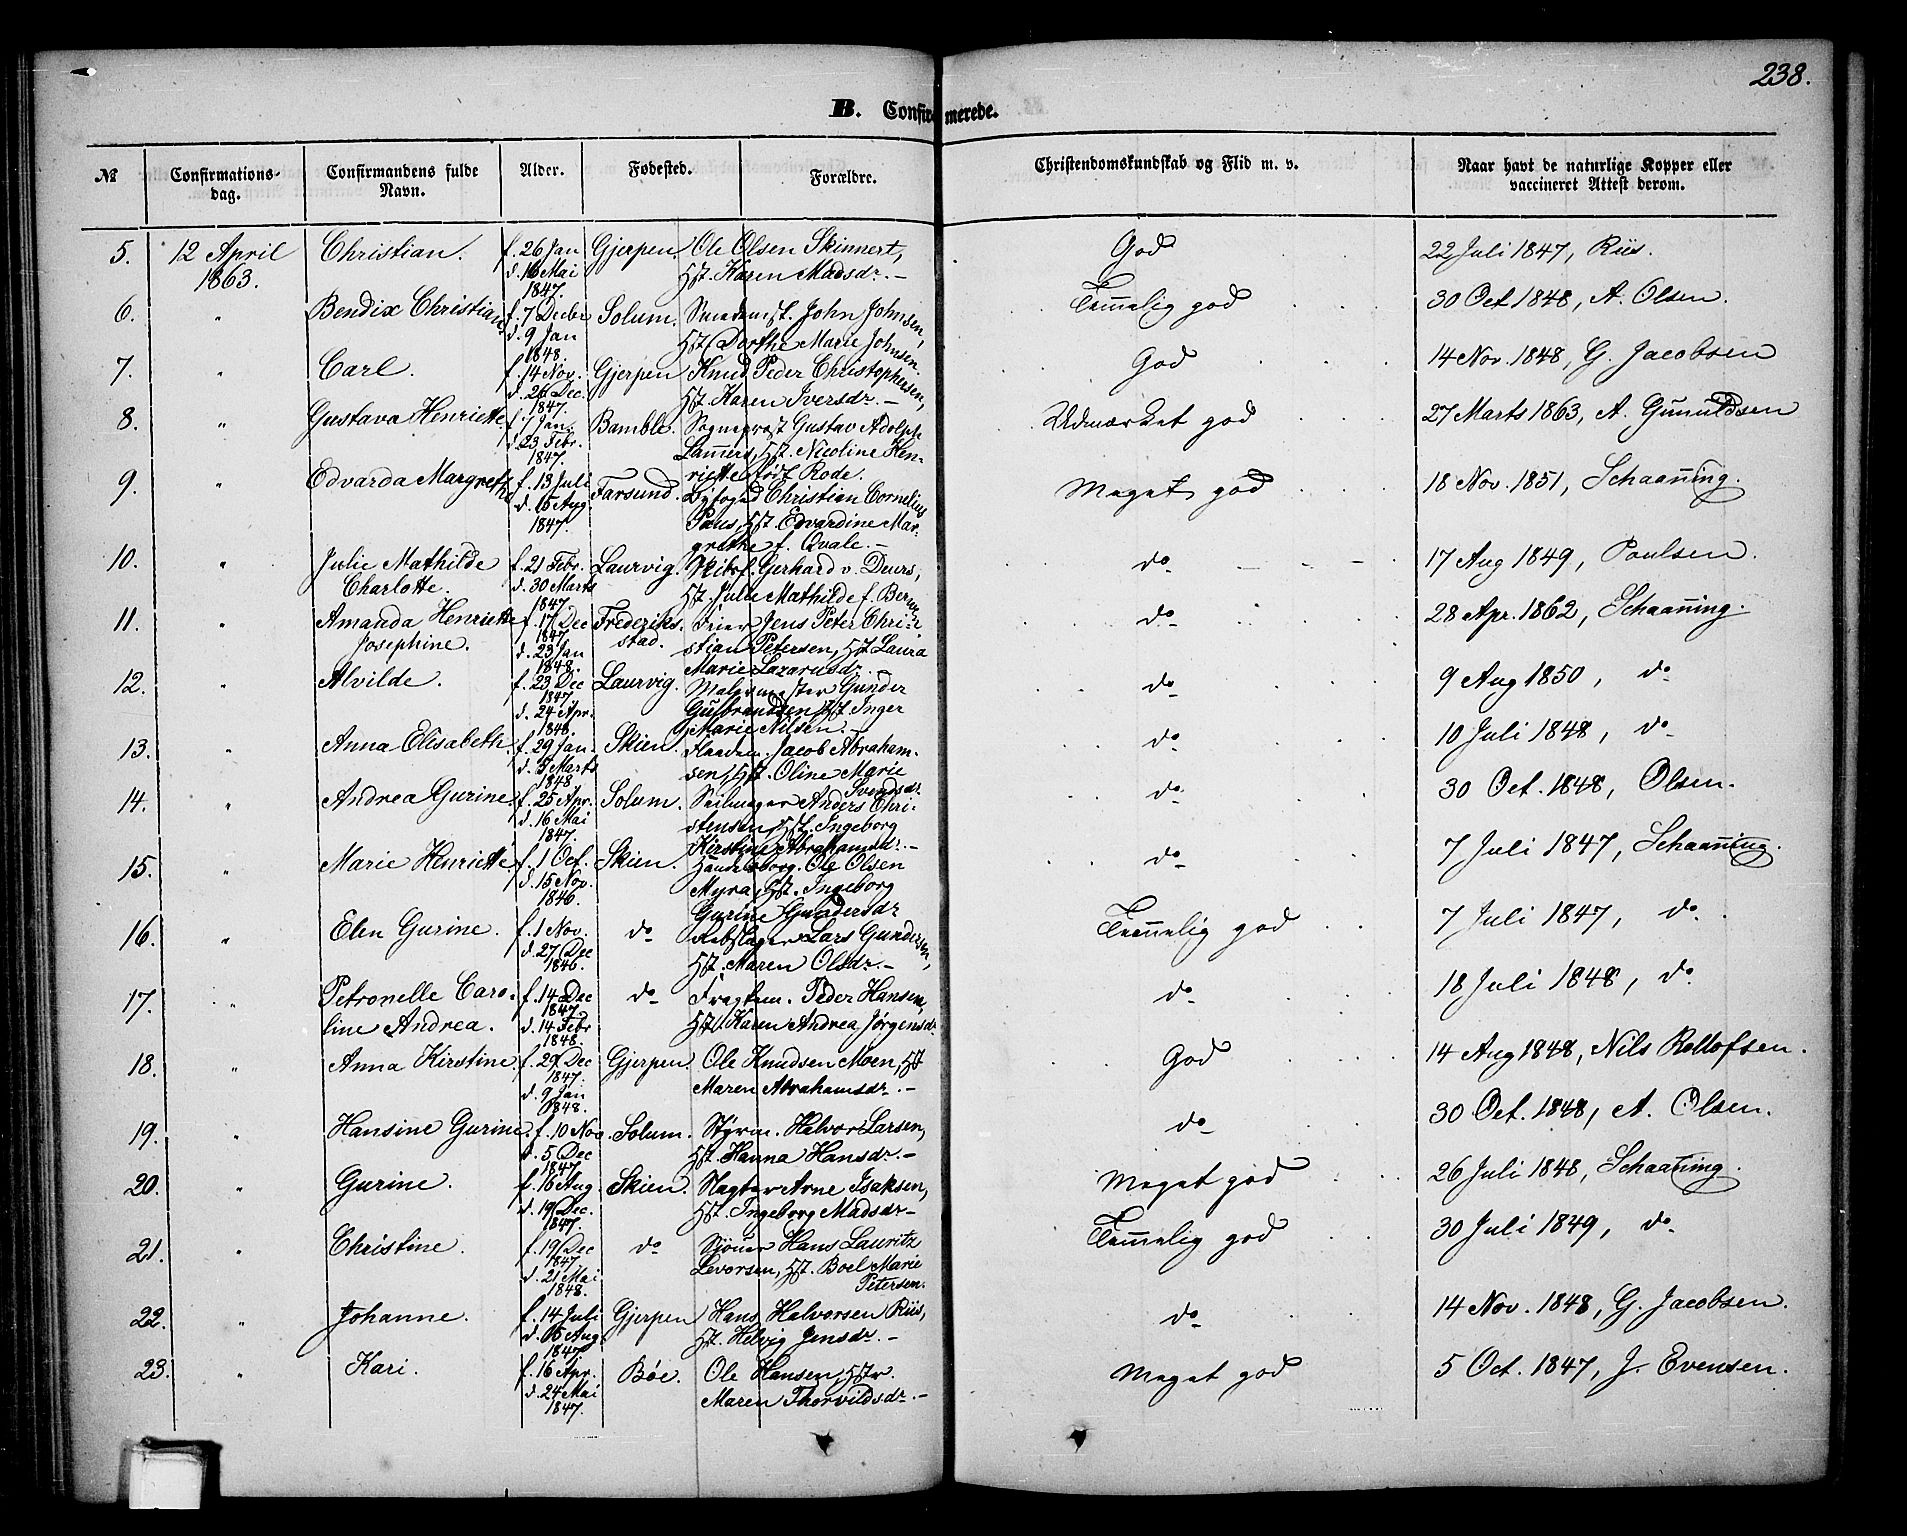 238.
B. Confirmerede.
№ Confirmations-dag. Confirmandens fulde Navn. Alder. Fødested. Forældre. Christendomskundskab og Flid m. v. Naar havt de naturlige Kopper eller vaccineret Attest derom.
5. 12 April Christian. f. 26 Jan Gjerpen. Ole Olsen Skinnert, God 22 Juli 1847, Riis.
1863. d. 16 Mai Hst. Karen Madsdr. –
1847.
6. " Bendix Christian. f. 7 Decbr Solum. Smedemst. John Johnsen, Temmelig god 30 Oct. 1848, A. Olsen.
d. 9 Jan Hst. Dorthe Marie Johnsen.
1848.
7. " Carl. f. 14 Nov. Gjerpen Knud Peder Christophersen, God 14 Nov. 1848, G. Jacobsen
d. 26 Dec. Hst. Karen Iversdr. –
1847.
8. " Gustava Henriette f. 1 Jan. Bamble. Sognepræst Gustav Adolph Udmærket god 27 Marts 1863, A. Gunuldsen
d. 23 Febr. Lammers, Hst. Nicoline Hen-
1847. riette født Rode.
9. " Edvarda Margrethe f. 13 Juli Farsund. Byfoged Christian Cornelius Meget god 18 Nov. 1851, Schaanning.
d. 15 Aug. Paus, Hst. Edvardine Mar-
1847. grethe f. Qvale. –
10. " Julie Mathilde f. 21 Febr. Laurvig. Skibsf. Gerhard v. Deurs, do 17 Aug 1849, Poulsen.
Charlotte. d. 30 Marts Hst. Julie Mathilde f.
1847.
11. " Amanda Henriette f. 17 Dec Frederiks- Jens Peter Chri- do 28 Apr. 1862, Schaanning.
Josephine. 1847. stad. stian Petersen, Hst. Laura
d. 23 Jan Marie Lazarusdr. –
1848.
12. " Alvilde. f. 23 Dec Laurvig. Malermester Gunder do 9 Aug 1850, do
1847. Gulbrandsen, Hst. Inger
d. 24 Apr. Marie Nilsen. –
1848.
13. " Anna Elisabeth. f. 29 Jan. Skien. Jacob Abraham- do 10 Juli 1848, do
d. 5 Marts sen, Hst. Oline Marie
1848 Svendsdr.
14. " Andrea Gurine. f. 25 Apr. Solum. Anders Chri- do 30 Oct. 1848, Olsen.
d. 16 Mai stensen, Hst. Ingeborg
1847. Kirstine Abrahamsdr. –
15. " Marie Henriette f. 1 Oct. Skien. Handelsborg. Ole Olsen do 7 Juli 1847, Schaanning.
d. 15 Nov. Myra, Hst. Ingeborg
1846. Gurine Gundersdr
16. " Elen Gurine. f. 1 Nov. do Rebslager Lars Gundersen, Temmelig god 7 Juli 1847, do
d. 27 Dec Hst. Maren Olsdr. –
1846.
17. " Petronelle Caro- f. 14 Dec do Fragtem. Peder Hansen, do 18 Juli 1848, do
line Andrea. 1847. Hst. Karen Andrea Jørgensdr.
d. 14 Febr
1848.
18. " Anna Kirstine. f. 29 Dec Gjerpen. Ole Knudsen Moen, Hst God 14 Aug 1848, Nils Rollofsen.
1847. Maren Abrahamsdr. –
d. 9 Jan
1848.
19. " Hansine Gurine. f. 10 Nov. Solum. Styrm. Halvor Larsen, do 30 Oct. 1848, A. Olsen.
d. 5 Dec Hst. Hanna Hansdr. –
1847
20. " Gurine. f. 16 Aug Skien. Vægter Arne Isaksen, Meget god 26 Juli 1848, Schaaning.
d. 19 Dec. Hst. Ingeborg Madsdr –
1847.
21. " Christine. f. 19 Dec do Hans Lauritz Temmelig god 30 Juli 1849, do
1847 Levorsen, Hst. Boel Marie
d. 21 Mai Petersen.
1848.
22. " Johanne. f. 14 Juli Gjerpen Hans Halvorsen Riis, do 14 Nov. 1848, G. Jacobsen.
d. 15 Aug. Hst. Helvig Jensdr. –
1847.
23. " Kari. f. 16 Apr. Bøe. Ole Hansen, Hstr. Meget god 5 Oct. 1847, J. Evensen.
d. 24 Mai Maren Thorvildsdr. –
1847.